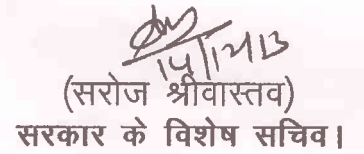 14/12/13
(सरोज श्रीवास्तव)
सरकार के विशेष सचिव।